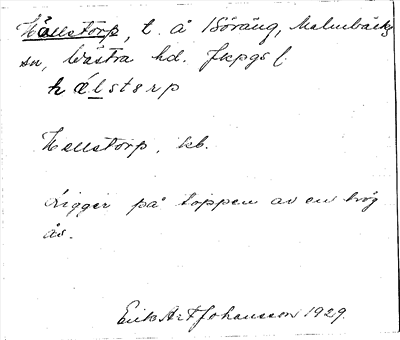 Hallstorp, t. å Böräng, Malmbäcks
sn, Västra hd. Jkpgs l.
hálstərp
Hallstorp, kb.
Ligger på toppen av en hög
ås.
Erik Art Johansson 1929.